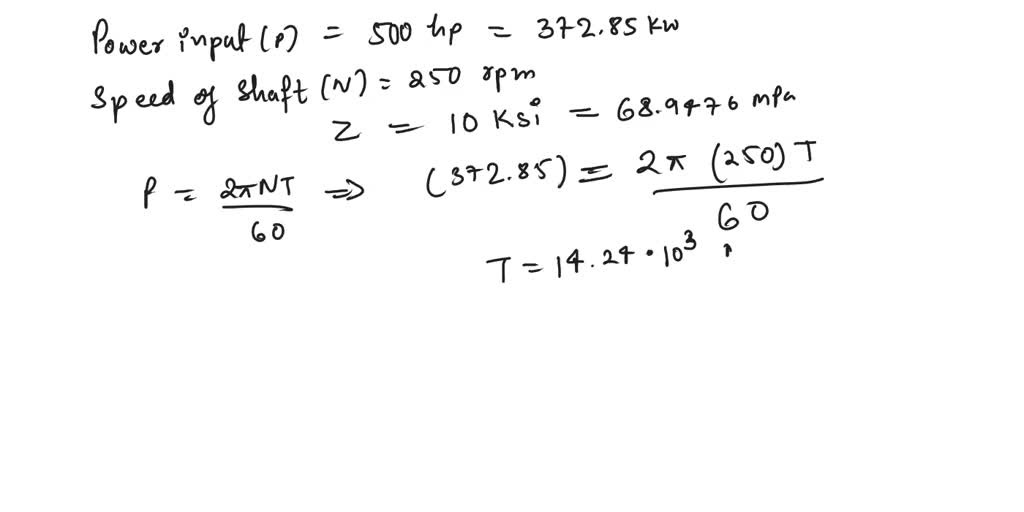 Power input (P) = 500 hp = 372.85 kw
Speed of shaft (N) = 250 rpm
Z = 10 Ksi = 68.9476 mpa
P = 2πNT / 60 ⇒ (372.85) = 2π (250) T / 60
T = 14.24 · 10³